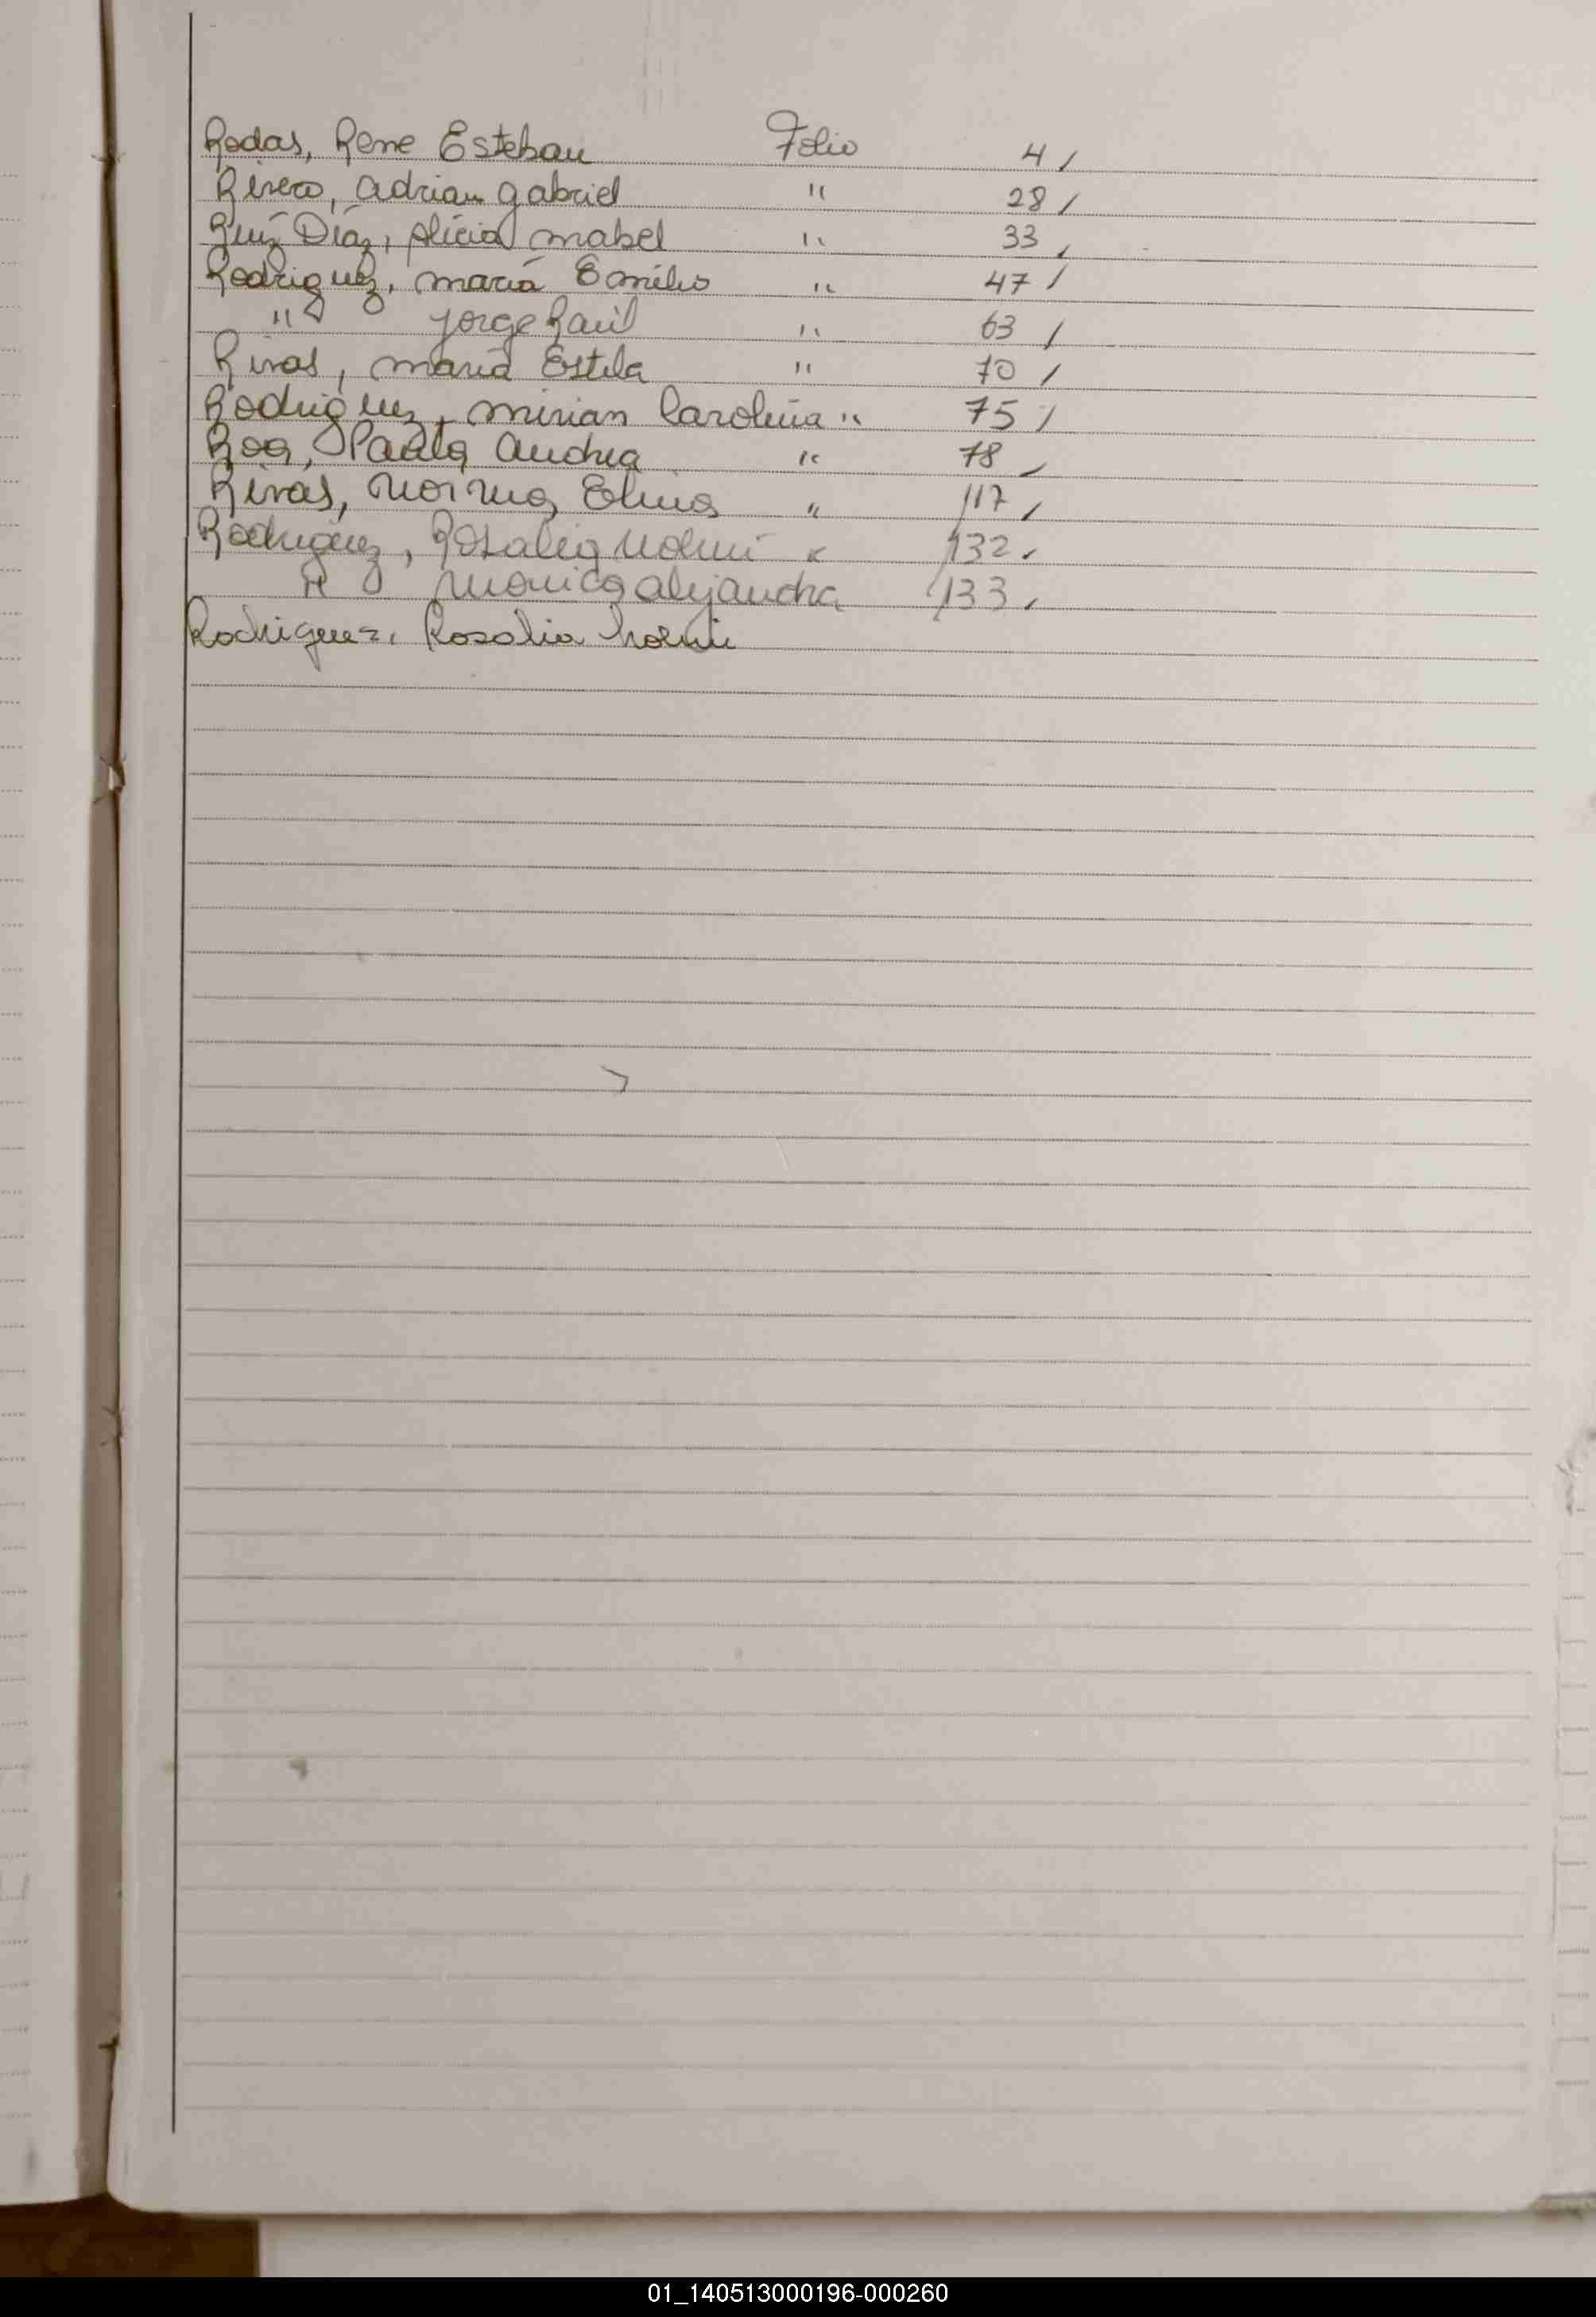 Rodas, Rene Esteban Folio 4 /
Rivero, Adrian Gabriel " 28 /
Ruíz Díaz, Alicia Mabel " 33 /
Rodriguez, María Emilio " 47 /
" Jorge Raúl " 63 /
Rivas, María Estela " 70 /
Rodriguez, Mirian Carolina " 75 /
Roa, Paula Andrea " 78 /
Rivas, Norma Elina " 117 /
Rodriguez, Rosalia Noemí " 132 /
" Monica Alejandra 133 /
Rodriguez, Rosalia Noemi
01_140513000196-000260